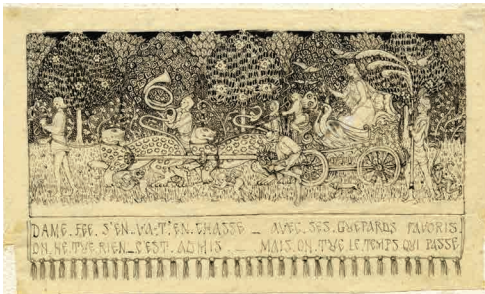 DAME. FEE. S'EN. VA-T'. EN. CHASSE _ AVEC. SES. GUEPARDS FAVORIS.
ON. NE. TUE. RIEN _ C'EST. ADMIS _ MAIS. ON. TUE. LE. TEMPS QUI PASSE